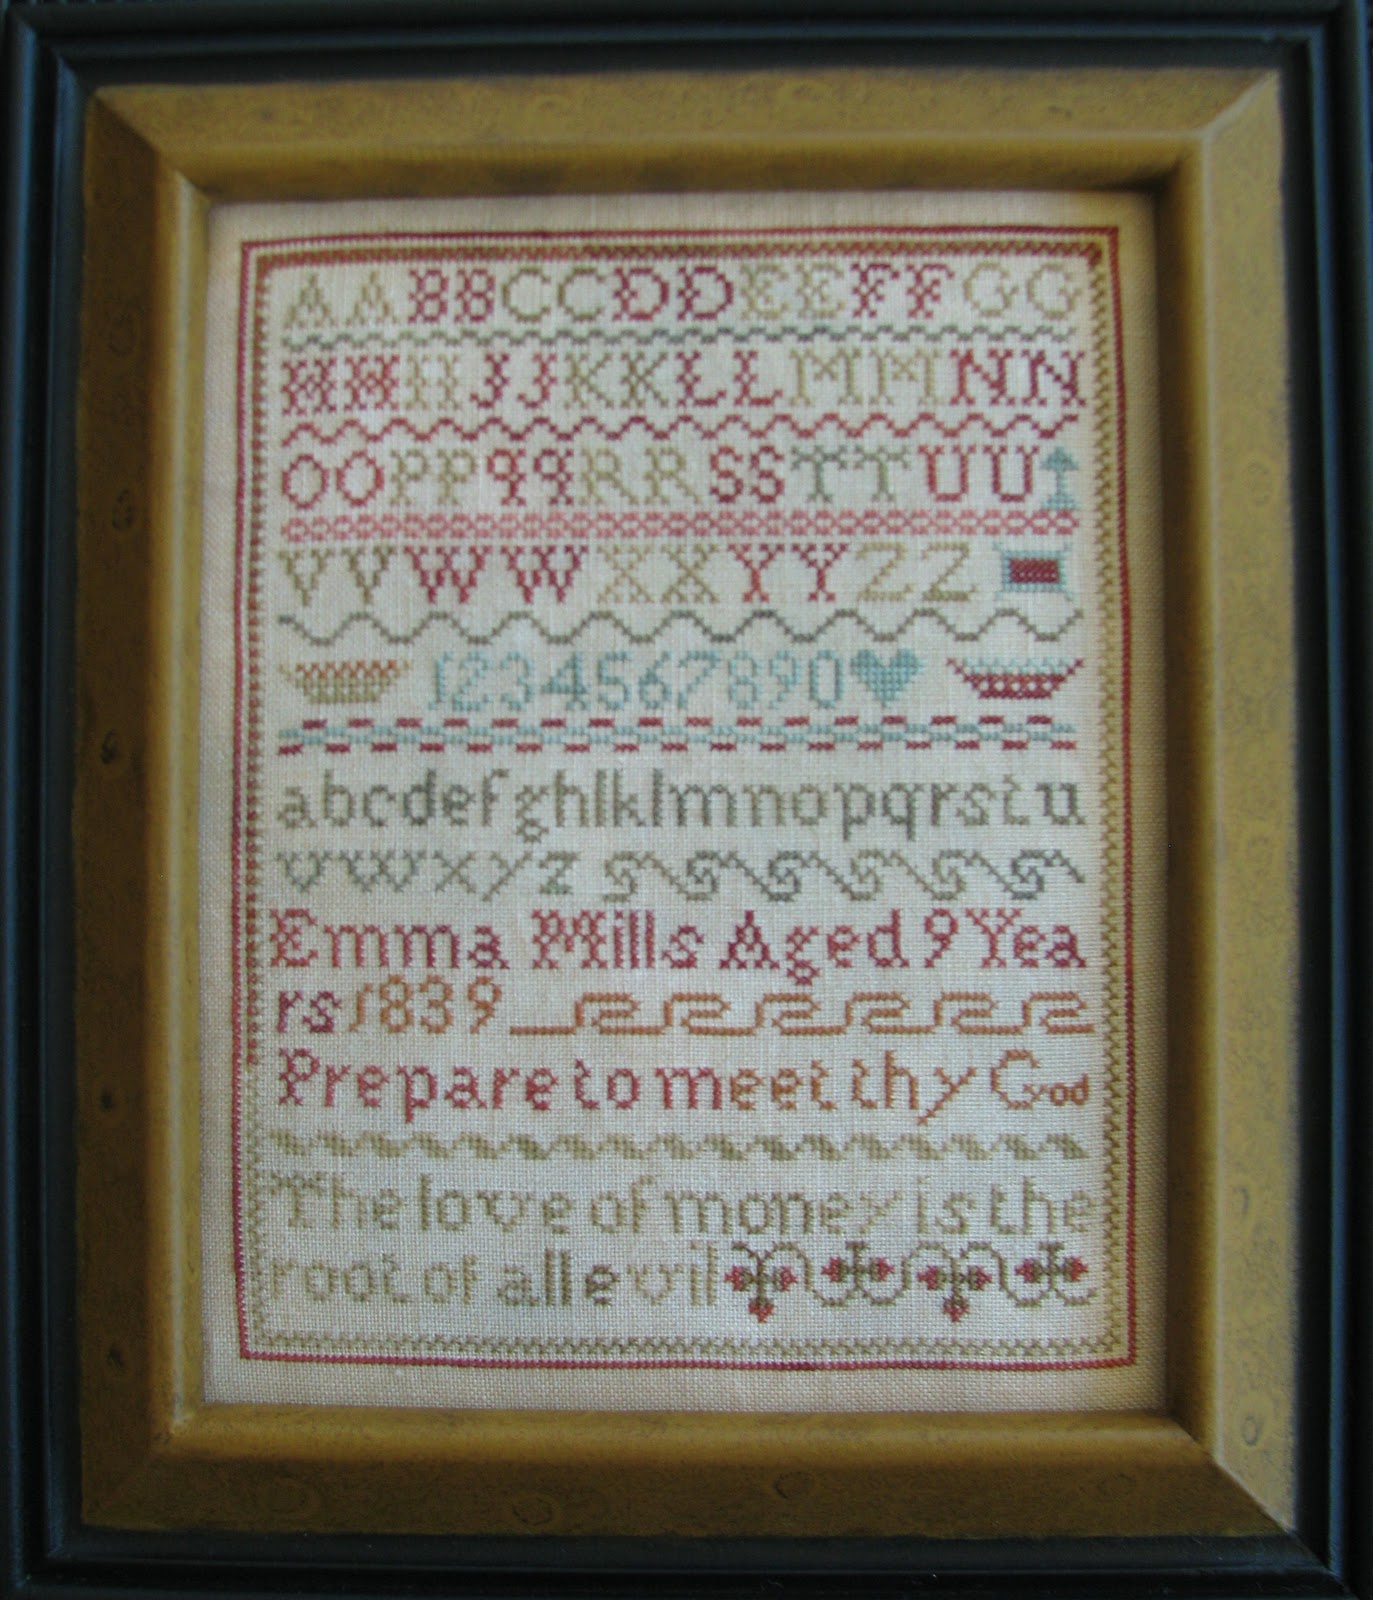 AABBCCDDEEFFGG
HHIIJJKKLLMMNN
OOPPqqRRSSTTUU
VVWWXXYYZZ
1234567890
abcdefghiklmnopqrstu
vwxyz
Emma Mills Aged 9 Yea
rs 1839
Prepare to meet thy God
The love of money is the
root of all evil